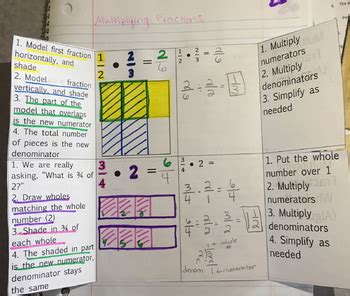 Multiplying Fractions
1. Model first fraction
horizontally, and
shade
2. Model fraction
vertically, and shade
3. The part of the
model that overlaps
is the new numerator
4. The total number
of pieces is the new
denominator
1/2 • 2/3 = 2/6
1/2 • 2/3 = 2/6
2/6 ÷ 2/2 = 1/3
1. Multiply
numerators
2. Multiply
denominators
3. Simplify as
needed
1. We are really
asking,
"What is ¾ of
2?"
2. Draw wholes
matching the whole
number (2)
3. Shade in ¾ of
each whole
4. The shaded in part
is the new numerator,
denominator stays
the same
3/4 • 2 = 6/4
1 2 3
4 5 6
3/4 • 2 =
3/4 • 2/1 = 6/4
6/4 ÷ 2/2 = 3/2 = 1 1/2
1 ← whole
2)3
denom 1 ← numerator
1. Put the whole
number over 1
2. Multiply
numerators
3. Multiply
denominators
4. Simplify as
needed